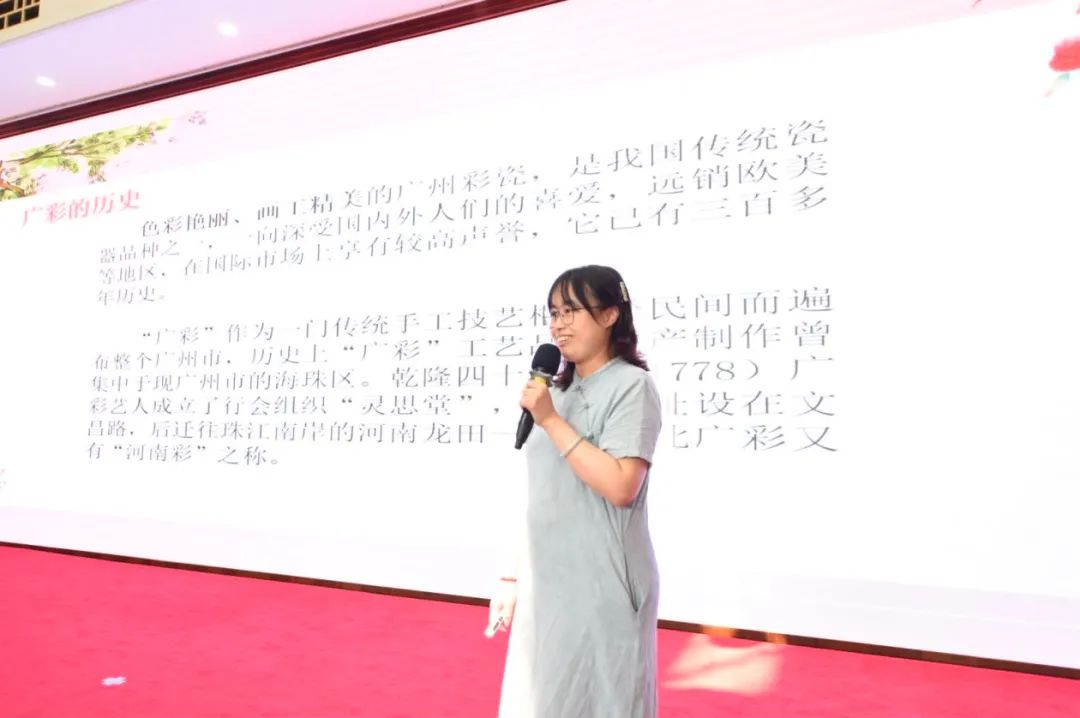 广彩的历史
色彩艳丽、画工精美的广州彩瓷，是我国传统瓷
器品种之一，一向深受国内外人们的喜爱，远销欧美
等地区，在国际市场上享有较高声誉，它已有三百多
年历史。
“广彩”作为一门传统手工技艺 民间而遍
布整个广州市，历史上“广彩”工艺 产制作曾
集中于现广州市的海珠区。乾隆四十 1778）广
彩艺人成立了行会组织“灵思堂”， 设在文
昌路，后迁往珠江南岸的河南龙田一 广彩又
有“河南彩”之称。